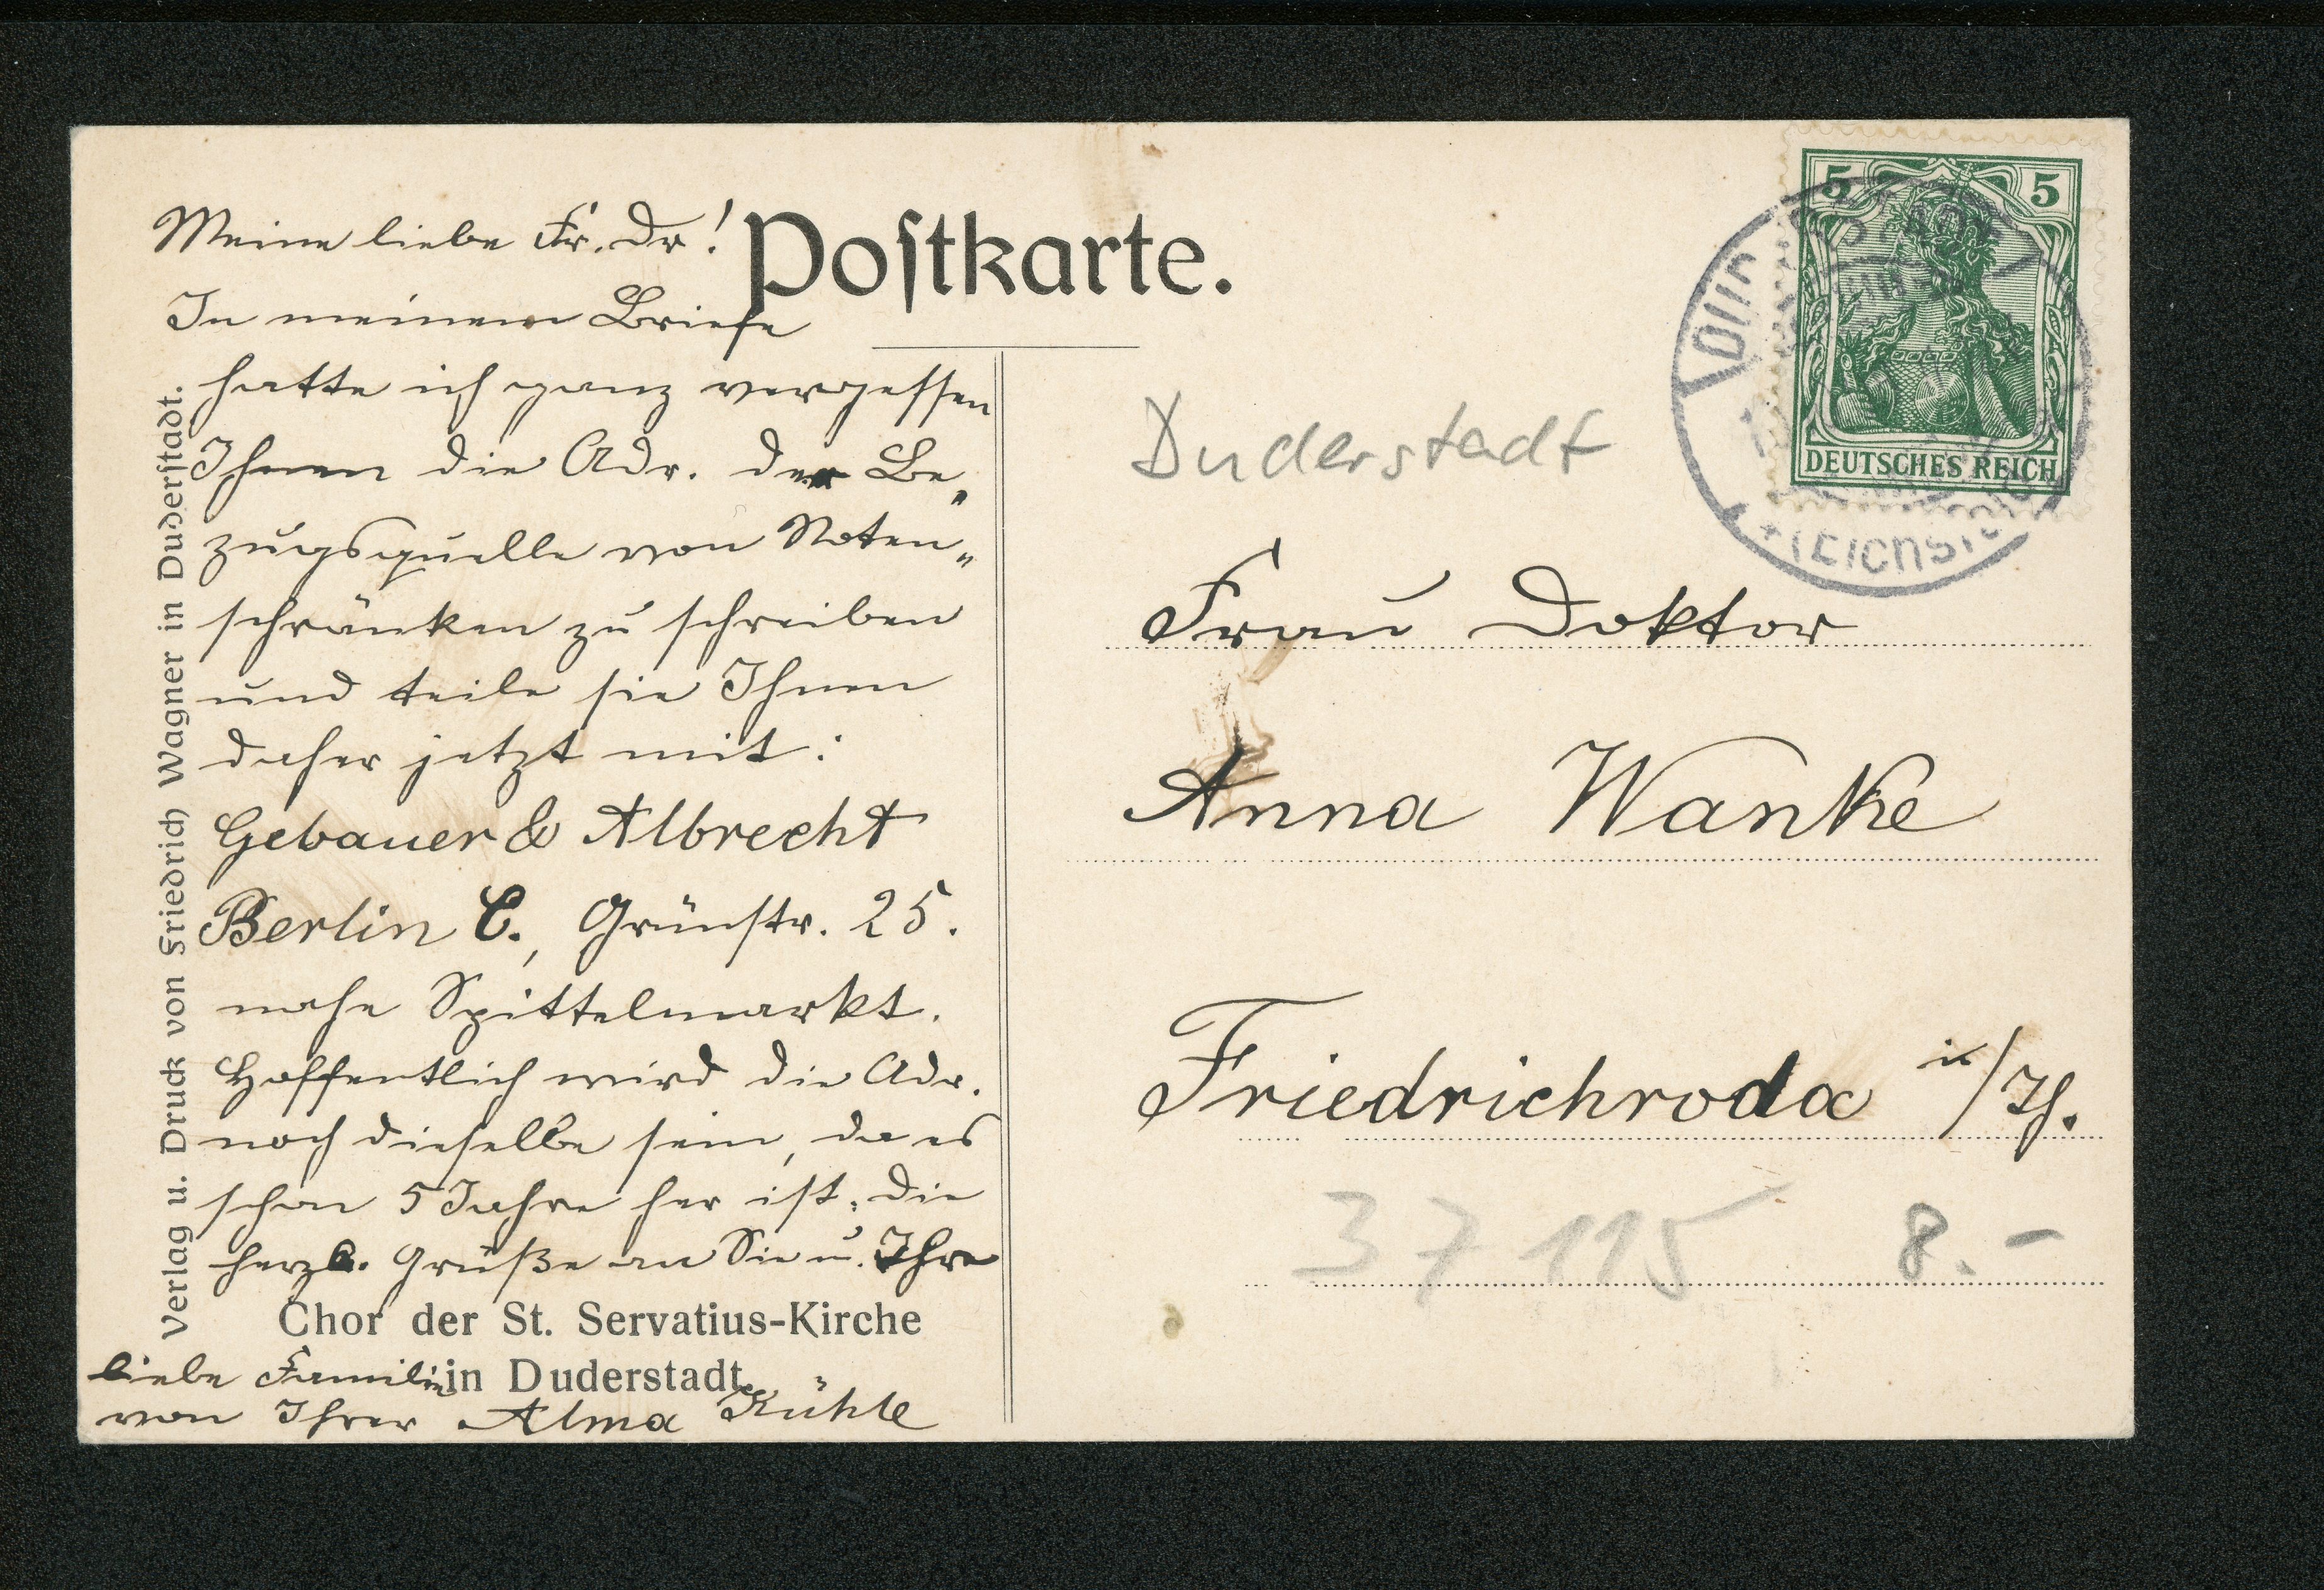 Postkarte.
Meine liebe Fr. Dr!
In meinem Briefe
hatte ich ganz vergessen
Ihnen die Adr. der Be„
zugsquelle von Noten„
schränken zu schreiben
und teile sie Ihnen
daher jetzt mit:
Gebauer & Albrecht
Berlin C., Grünstr. 25.
nahe Spittelmarkt.
Hoffentlich wird die Adr.
noch dieselbe sein, da es
schon 5 Jahre her ist. Die
herzl. Grüße an Sie u. Ihre
liebe Familie
von Ihrer Alma Kühle
Chor der St. Servatius-Kirche
in Duderstadt.
Verlag u. Druck von Friedrich Wagner in Duderstadt.
5 5
DEUTSCHES REICH
Duderstadt
Frau Doktor
Anna Wanke
Friedrichroda i/Th.
37115 8.-